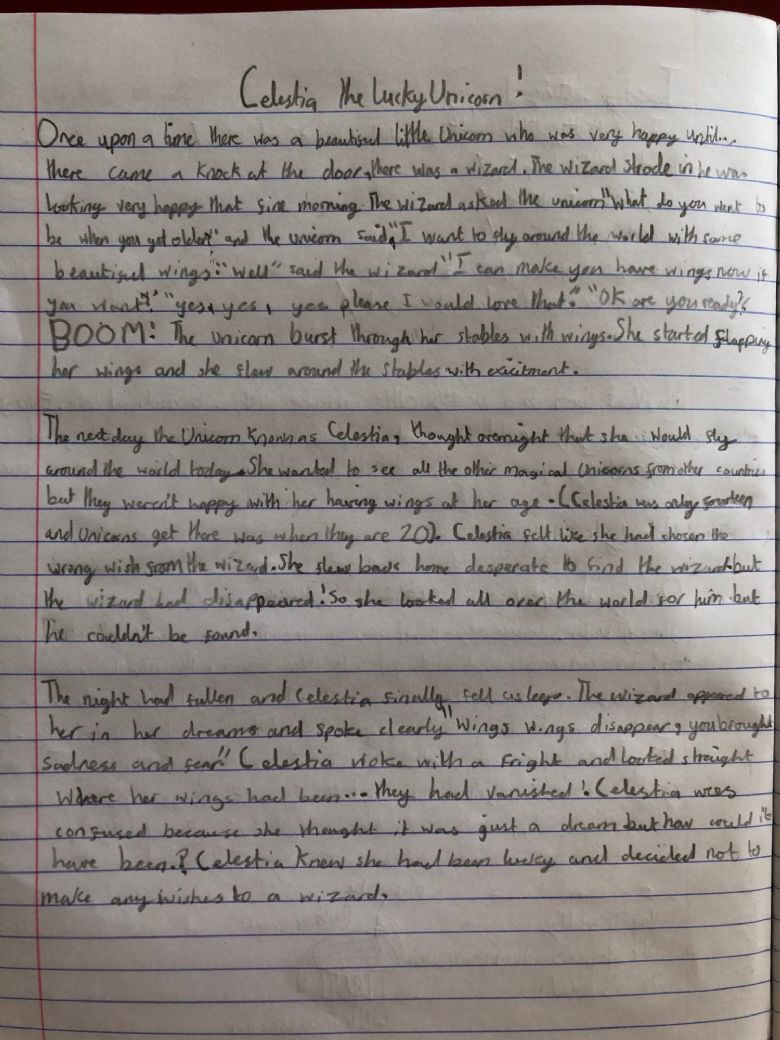 Celestia the Lucky Unicorn!
Once upon a time there was a beautisul little Unicorn who was very happy until...
there came a knock at the door, there was a wizard. The wizard strode in he was
looking very happy that fine morning. The wizard asked the unicorn "What do you want to
be when you get older?" and the unicorn said, "I want to fly around the world with some
beautiful wings". "Well" said the wizard "I can make you have wings now if
you want?" "yes, yes, yes please I would love that." "OK are you ready?"
BOOM! The unicorn burst through her stables with wings. She started flapping
her wings and she flew around the stables with exicitment.
The next day the Unicorn known as Celestia, thought overnight that she would fly
around the world today. She wanted to see all the other magical Unicorns from other countries
but they weren't happy with her having wings at her age. (Celestia was only fourteen
and Unicorns get there was when they are 20). Celestia felt like she had chosen the
wrong wish from the wizard. She flew back home desperate to find the wizard but
the wizard had disappeared! So she looked all over the world for him but
he couldn't be found.
The night had fallen and Celestia finally fell asleep. The wizard appered to
her in her dreams and spoke clearly "Wings wings disappear, you brought
sadness and fear" Celestia woke with a fright and looked straight
Where her wings had been... they had vanished! Celestia was
confused because she thought it was just a dream but how could it
have been.? Celestia knew she had been lucky and decided not to
make any wishes to a wizard.